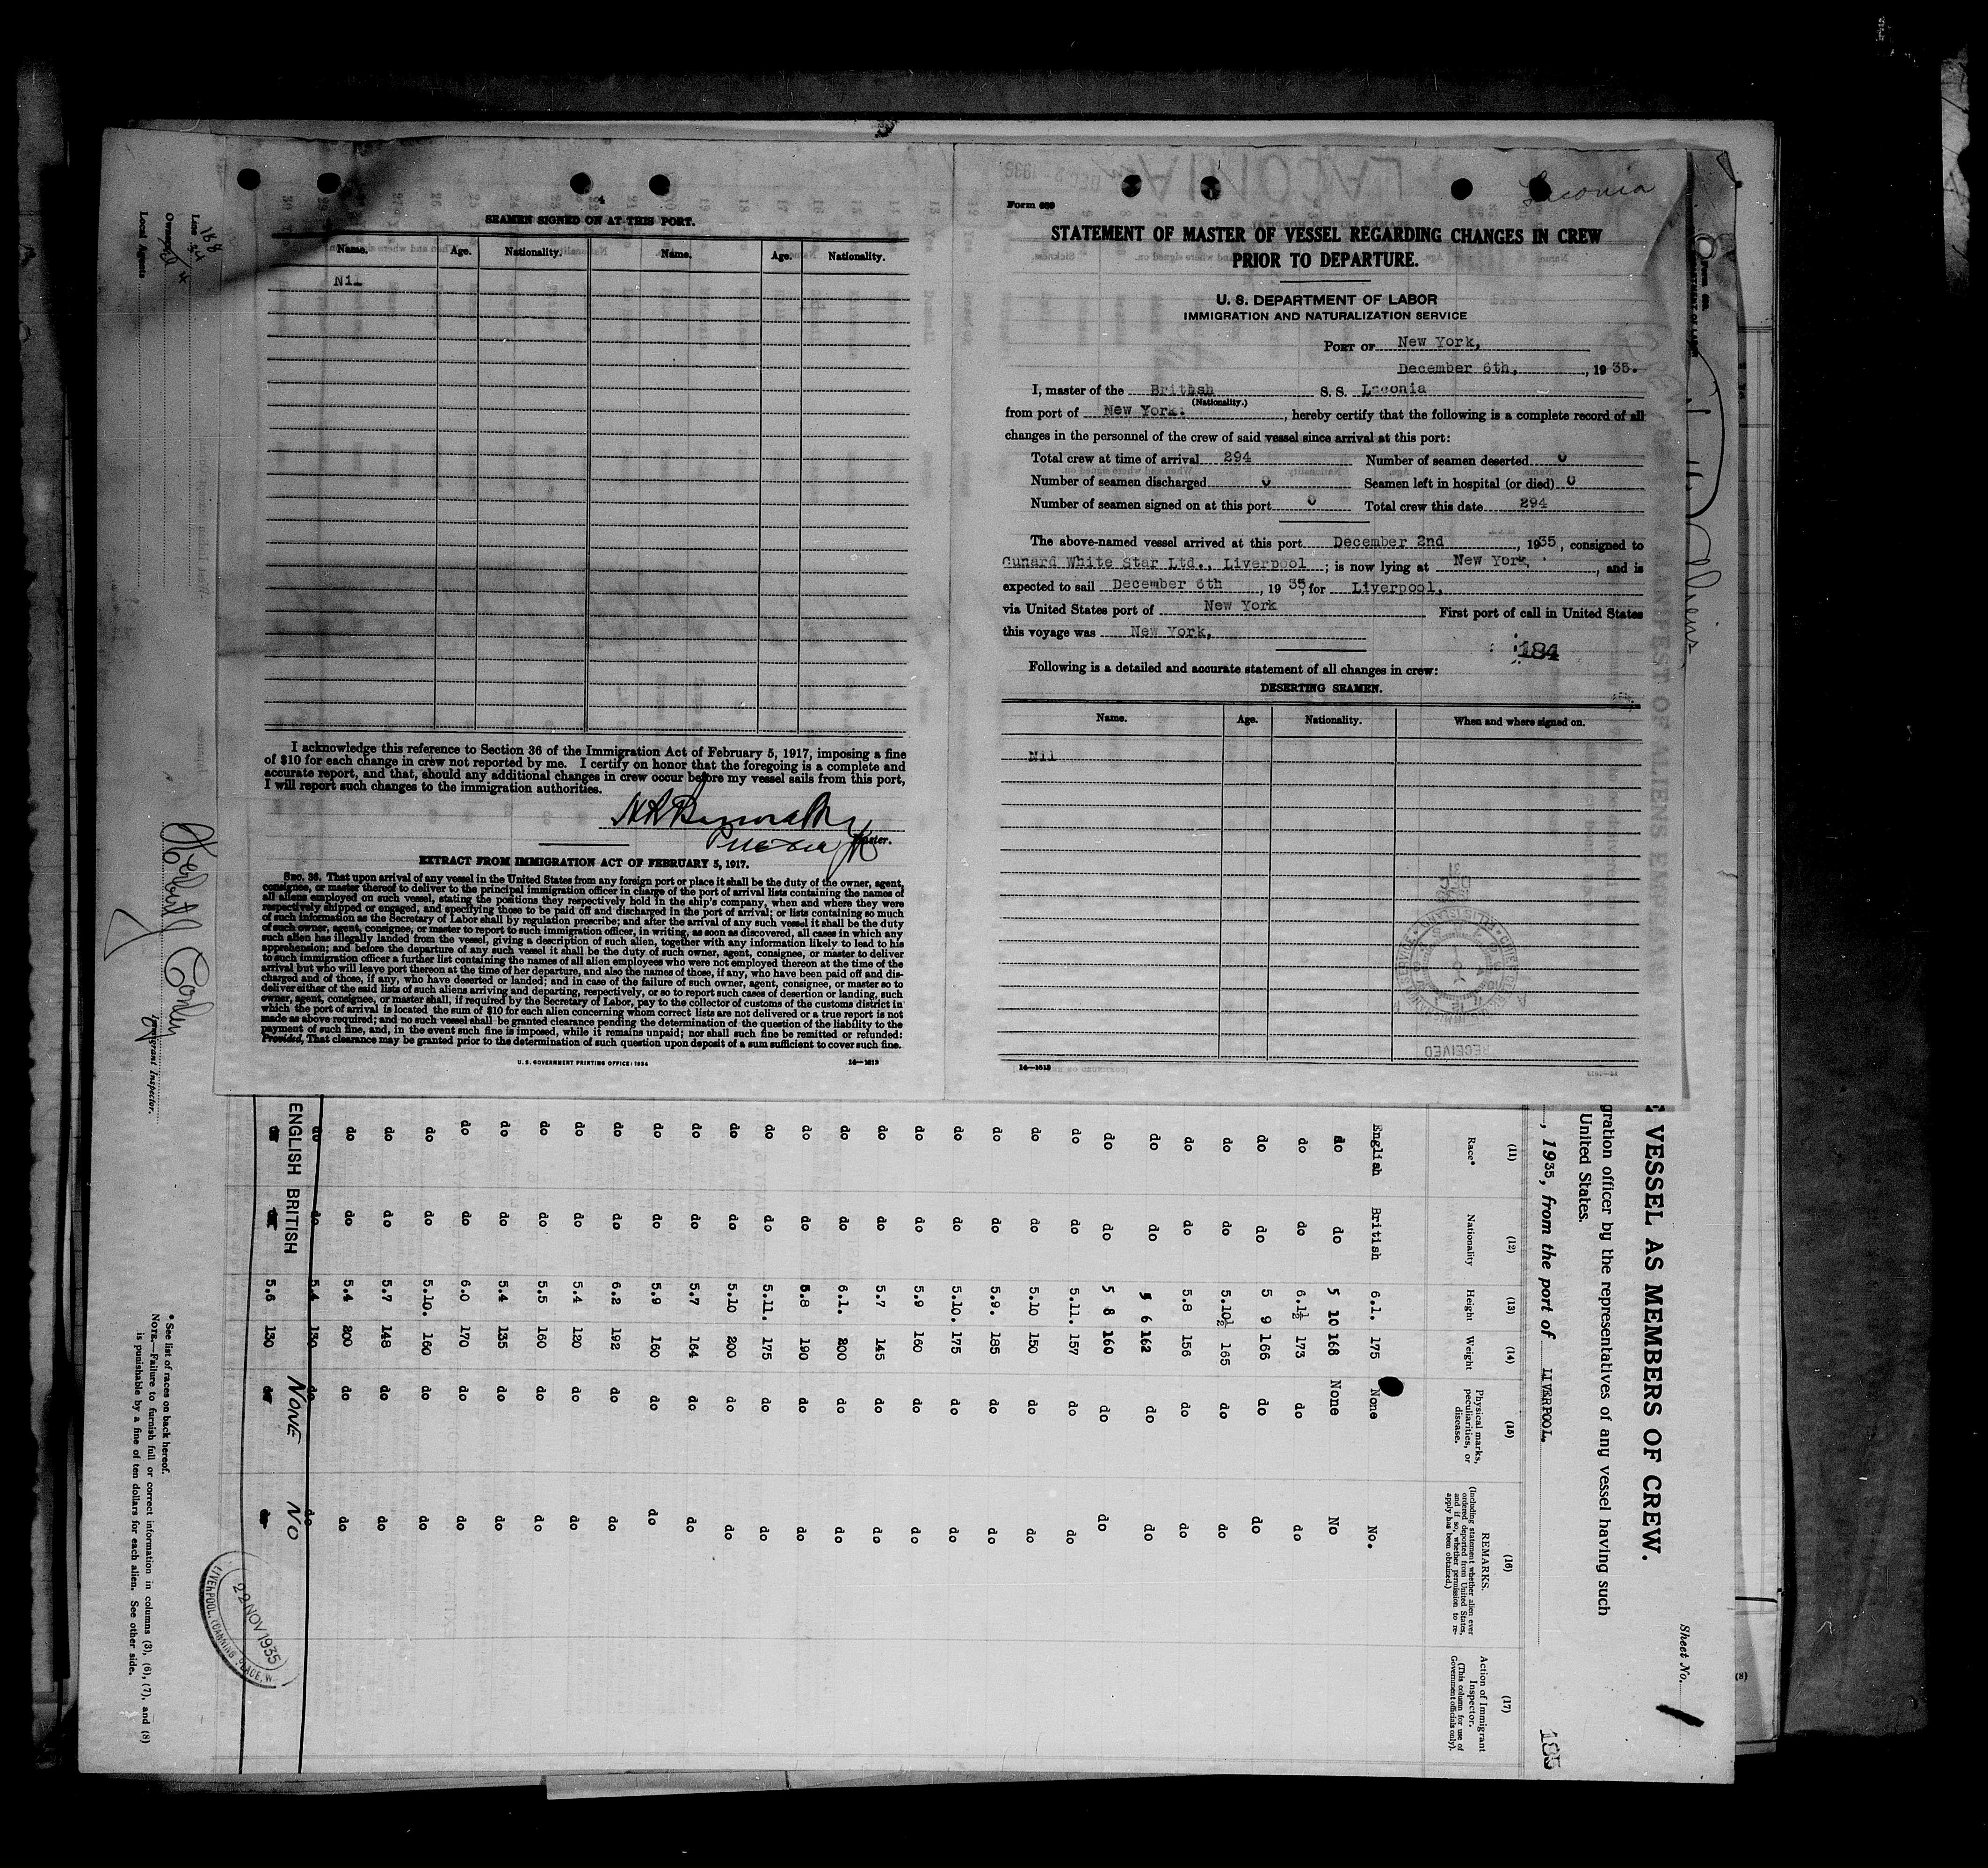 Laconia
Form 689
STATEMENT OF MASTER OF VESSEL REGARDING CHANGES IN CREW
PRIOR TO DEPARTURE.
U. S. DEPARTMENT OF LABOR
IMMIGRATION AND NATURALIZATION SERVICE
PORT OF New York,
December 6th, , 19 35.
I, master of the British S. S. Laconia
(Nationality.)
from port of New York. , hereby certify that the following is a complete record of all
changes in the personnel of the crew of said vessel since arrival at this port:
Total crew at time of arrival 294 Number of seamen deserted 0
Number of seamen discharged 0 Seamen left in hospital (or died) 0
Number of seamen signed on at this port 0 Total crew this date 294
The above-named vessel arrived at this port December 2nd , 1935 , consigned to
Cunard White Star Ltd., Liverpool ; is now lying at New York, , and is
expected to sail December 6th , 19 35, for Liverpool,
via United States port of New York First port of call in United States
this voyage was New York,
184
Following is a detailed and accurate statement of all changes in crew:
DESERTING SEAMEN.
Name. Age. Nationality. When and where signed on.
Nil
14—1613
4
SEAMEN SIGNED ON AT THIS PORT.
Name. Age. Nationality. Name. Age. Nationality.
Nil
I acknowledge this reference to Section 36 of the Immigration Act of February 5, 1917, imposing a fine
of $10 for each change in crew not reported by me. I certify on honor that the foregoing is a complete and
accurate report, and that, should any additional changes in crew occur before my vessel sails from this port,
I will report such changes to the immigration authorities.
Master.
EXTRACT FROM IMMIGRATION ACT OF FEBRUARY 5, 1917.
SEC. 36. That upon arrival of any vessel in the United States from any foreign port or place it shall be the duty of the owner, agent,
consignee, or master thereof to deliver to the principal immigration officer in charge of the port of arrival lists containing the names of
all aliens employed on such vessel, stating the positions they respectively hold in the ship's company, when and where they were
respectively shipped or engaged, and specifying those to be paid off and discharged in the port of arrival; or lists containing so much
of such information as the Secretary of Labor shall by regulation prescribe; and after the arrival of any such vessel it shall be the duty
of such owner, agent, consignee, or master to report to such immigration officer, in writing, as soon as discovered, all cases in which any
such alien has illegally landed from the vessel, giving a description of such alien, together with any information likely to lead to his
apprehension; and before the departure of any such vessel it shall be the duty of such owner, agent, consignee, or master to deliver
to such immigration officer a further list containing the names of all alien employees who were not employed thereon at the time of the
arrival but who will leave port thereon at the time of her departure, and also the names of those, if any, who have been paid off and dis-
charged and of those, if any, who have deserted or landed; and in case of the failure of such owner, agent, consignee, or master so to
deliver either of the said lists of such aliens arriving and departing, respectively, or so to report such cases of desertion or landing, such
owner, agent, consignee, or master shall, if required by the Secretary of Labor, pay to the collector of customs of the customs district in
which the port of arrival is located the sum of $10 for each alien concerning whom correct lists are not delivered or a true report is not
made as above required; and no such vessel shall be granted clearance pending the determination of the question of the liability to the
payment of such fine, and, in the event such fine is imposed, while it remains unpaid; nor shall such fine be remitted or refunded:
Provided, That clearance may be granted prior to the determination of such question upon deposit of a sum sufficient to cover such fine.
U. S. GOVERNMENT PRINTING OFFICE: 1934 14—1613
Sheet No.
E VESSEL AS MEMBERS OF CREW.
gration officer by the representatives of any vessel having such
United States.
, 1935, from the port of LIVERPOOL. 185
(11) (12) (13) (14) (15) (16) (17)
Race* Nationality Height Weight Physical marks, peculiarities, or disease. REMARKS. (Including statement whether alien ever ordered deported from United States, and if so, whether permission to reapply has been obtained.) Action of Immigrant Inspector. (This column for use of Government officials only).
English British 6.1. 175 None No.
do do 5 10 168 None No
do do 6.1½ 173 do do
do do 5 9 166 do do
do do 5.10½ 165 do do
do do 5.8 156 do do
do do 5 6 162 do do
do do 5 8 160 do do
do do 5.11. 157 do do
do do 5.10 150 do do
do do 5.9. 185 do do
do do 5.10. 175 do do
do do 5.9 160 do do
do do 5.7 145 do do
do do 6.1. 200 do do
do do 5.8 190 do do
do do 5.11. 175 do do
do do 5.10 200 do do
do do 5.7 164 do do
do do 5.9 160 do do
do do 6.2 192 do do
do do 5.4 120 do do
do do 5.5 160 do do
do do 5.4 135 do do
do do 6.0 170 do do
do do 5.10. 160 do do
do do 5.7 148 do do
do do 5.4 200 do do
do do 5.4 130 do do
ENGLISH BRITISH NONE NO
do do 5.6 130 do do
LIVERPOOL, CANNING PLACE, W.
22 NOV 1935
* See list of races on back hereof.
NOTE.—Failure to furnish full or correct information in columns (3), (6), (7), and (8)
is punishable by a fine of ten dollars for each alien. See other side.
Immigrant Inspector.
188
Line
Owners
Local Agents
(8)